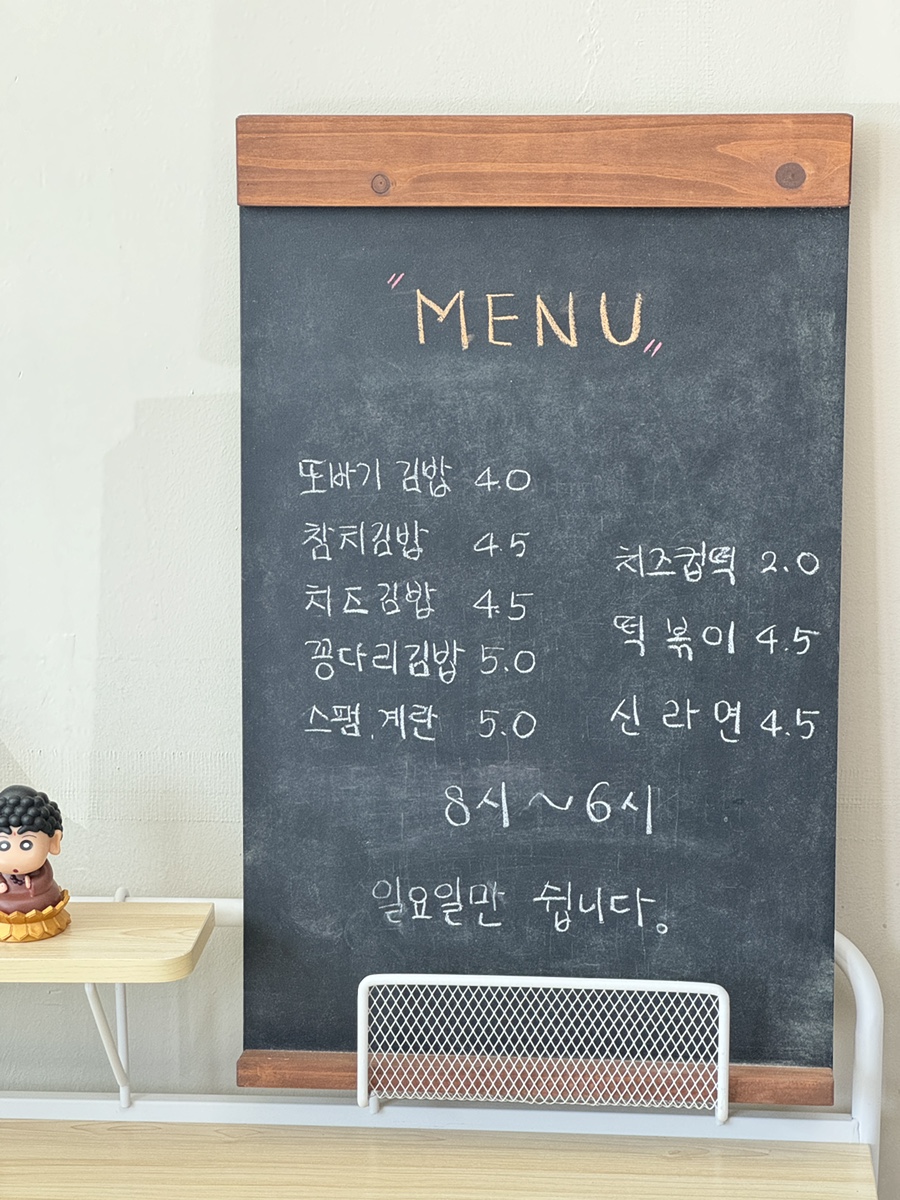 "MENU"
또바기 김밥 4.0
참치김밥 4.5
치즈김밥 4.5
꽁다리김밥 5.0
스팸.계란 5.0
치즈컵떡 2.0
떡볶이 4.5
신라면 4.5
8시~6시
일요일만 쉽니다.